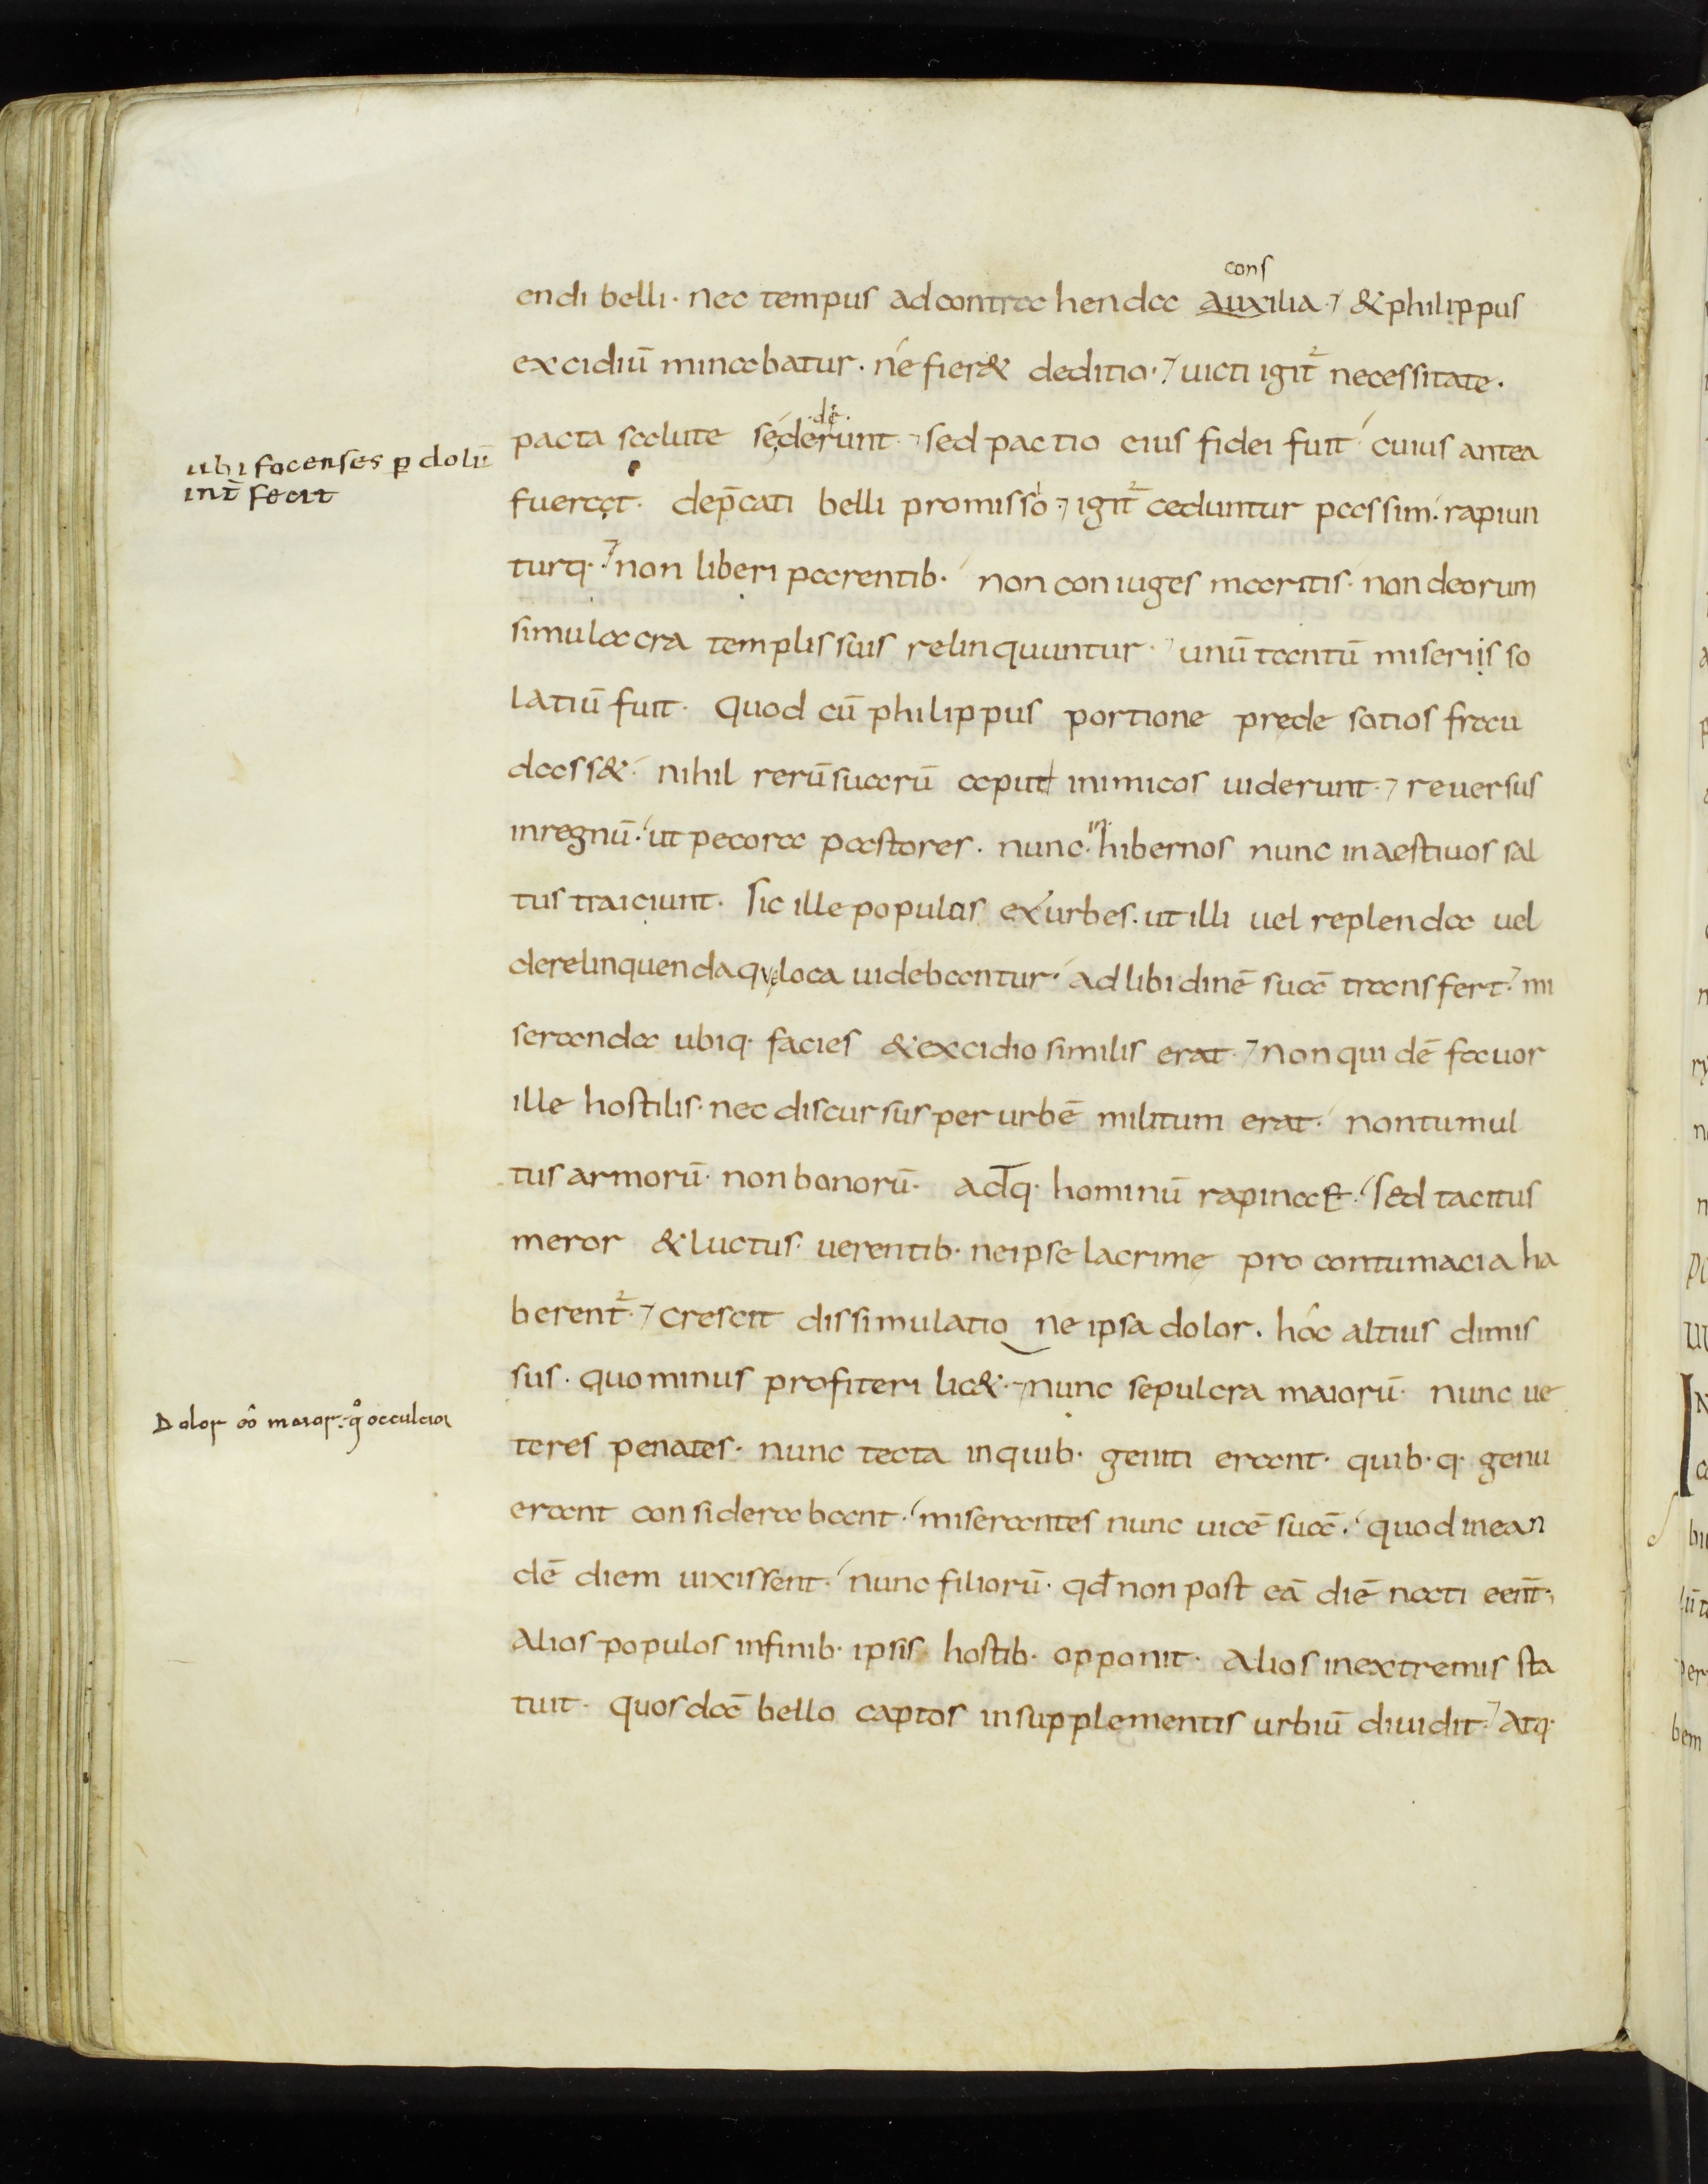 cons
endi belli· nec tempus ad contrahenda auxilia· & philippus
excidiū minabatur· ne fier& deditio· uicti igit̄ necessitate·
·de·
pacta salute sederunt· sed pactio eius fidei fuit cuius antea
ubi focenses ꝑ dolū
int̄fecit
fuerat· dep̄cati belli promisso· igit̄ ceduntur passim· rapiun
turq· non liberi parentib· non coniuges maritis· non deorum
simulacra templis suis relinquuntur· unū tantū miseriis so
latiū fuit· Quod cū philippus portione prede sotios frau
dass&· nihil rerū suarū aput inimicos uiderunt· reuersus
in·
in regnū· ut pecora pastores· nunc· hibernos nunc in aestiuos sal
tus traiciunt· Sic ille populos ex urbes· ut illi uel replenda uel
derelinquenda qve loca uidebantur· ad libidinē suā transfert· mi
seranda ubiq· facies & excidio similis erat· Non quidē fauor
ille hostilis· nec discursus per urbē militum erat· non tumul
tus armorū· non bonorū· adq· hominū rapinae· sed tacitus
meror & luctus· uerentib· ne ipse lacrimę pro contumacia ha
berent̄· crescit dissimulatio ne ipsa dolor· hoc altius dimis
sus· quo minus profiteri lic&· nunc sepulcra maiorū· nunc ue
Dolor oō maior· qͦ occulcior
teres penates· nunc tecta in quib· geniti erant· quib·q· genu
erant considerabant· miserantes nunc uicē suā· quod in ean
dē diem uixissent· nunc filiorū· qđ non post eā diē nati eēnt·
Alios populos in finib· ipsis hostib· opponit· Alios in extremis sta
tuit· quosdā bello captos in supplementis urbiū diuidit· Atq·